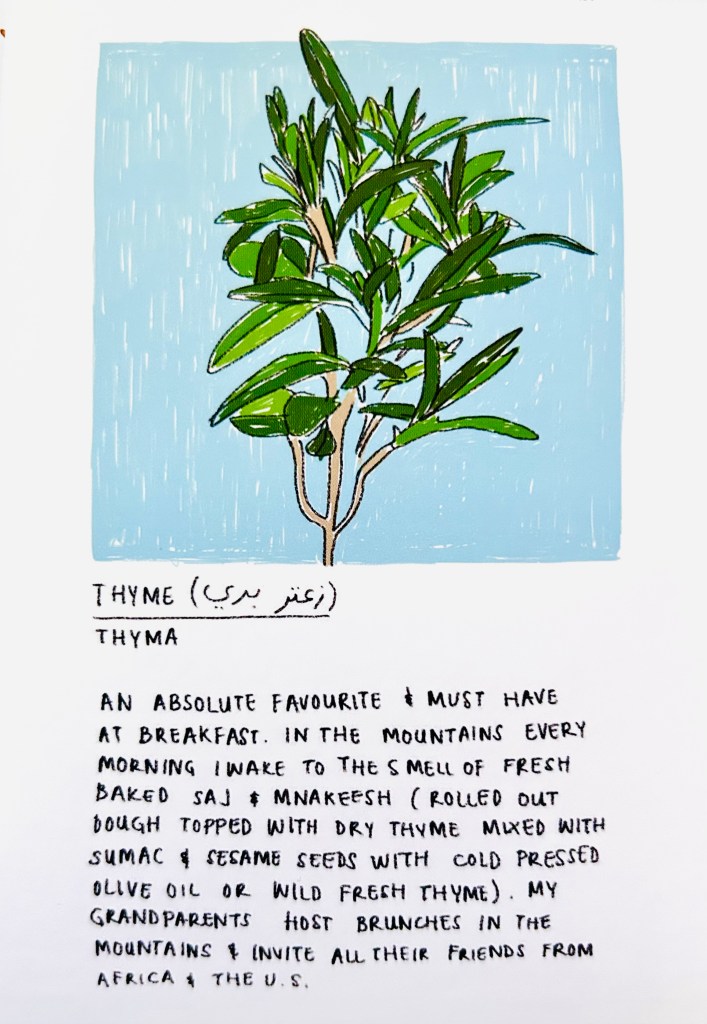 THYME (زعتر بري)
THYMA
AN ABSOLUTE FAVOURITE & MUST HAVE
AT BREAKFAST. IN THE MOUNTAINS EVERY
MORNING I WAKE TO THE SMELL OF FRESH
BAKED SAJ & MNAKEESH (ROLLED OUT
DOUGH TOPPED WITH DRY THYME MIXED WITH
SUMAC & SESAME SEEDS WITH COLD PRESSED
OLIVE OIL OR WILD FRESH THYME). MY
GRANDPARENTS HOST BRUNCHES IN THE
MOUNTAINS & INVITE ALL THEIR FRIENDS FROM
AFRICA & THE U.S.